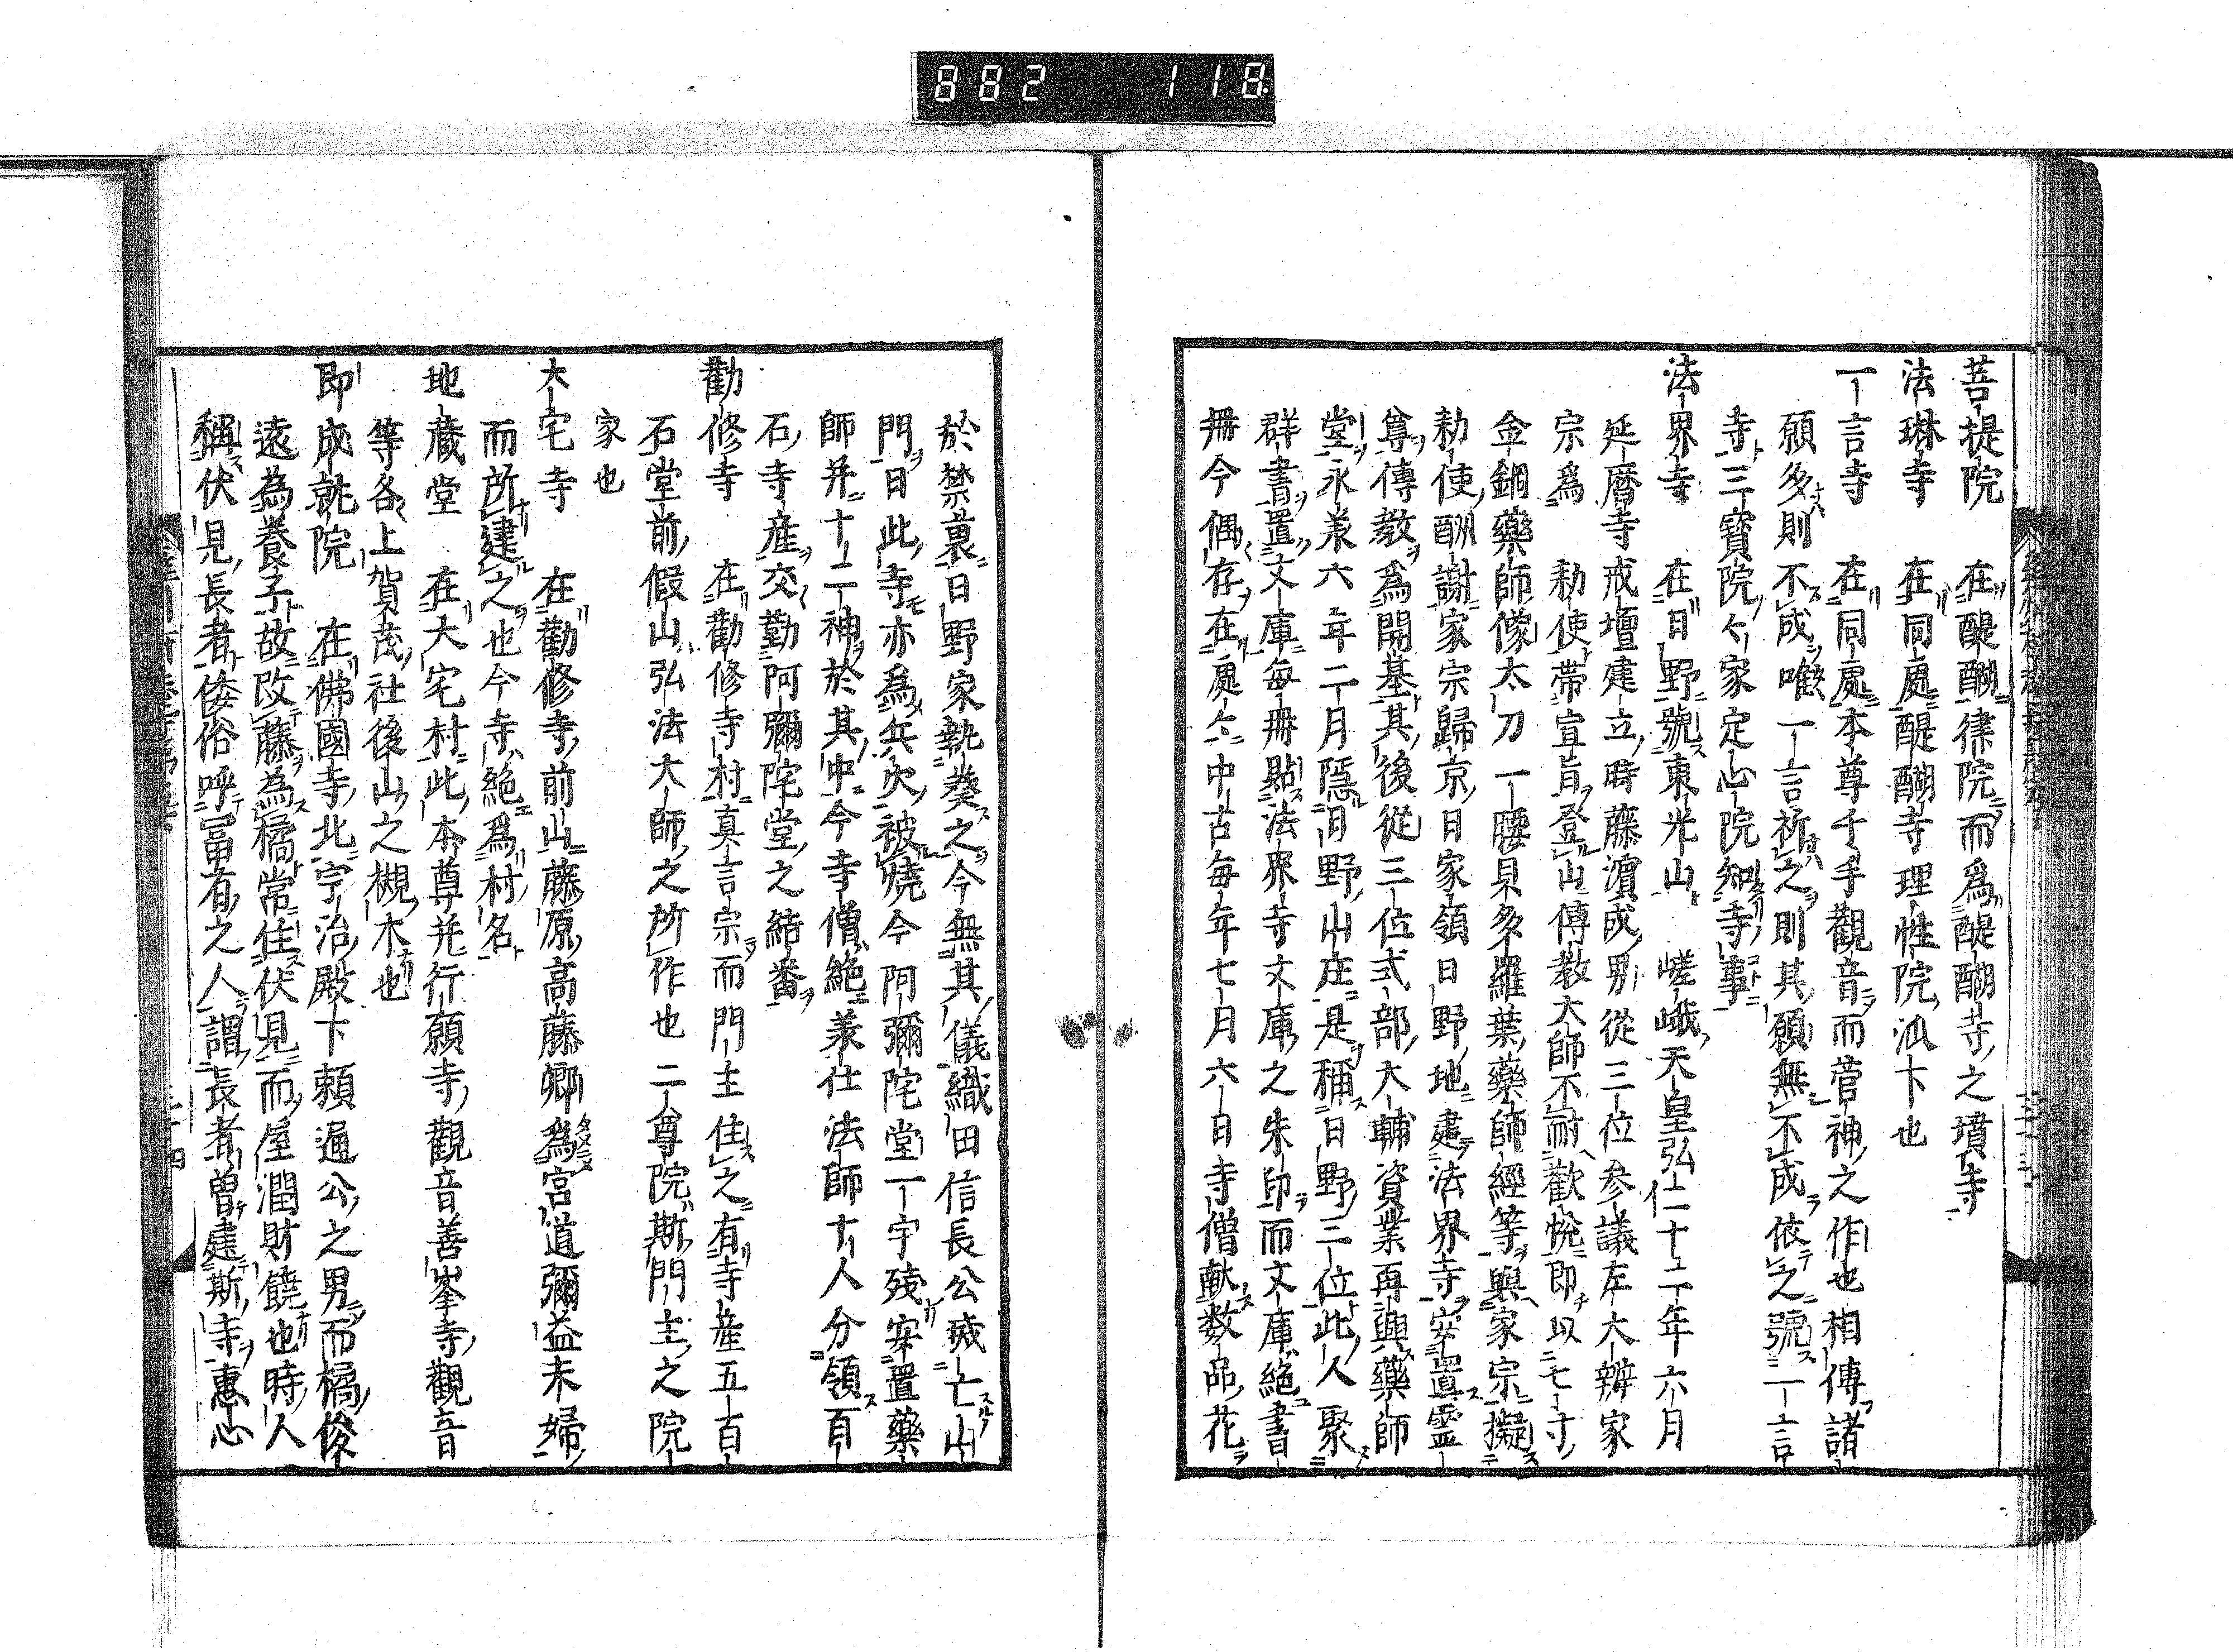 882 118
菩提院 在醍醐律院而爲醍醐寺之墳寺
法琳寺 在同處醍醐寺理性院派下也
一言寺 在同處本尊千手觀音而菅神之作也相傳諸
願多則不成唯一言祈之則其願無不成依之號一言
寺三寶院々家定心院知寺事
法界寺 在日野號東光山 嵯峨天皇弘仁十二年六月
延暦寺戒壇建立時藤濵成男從三位参議左大辨家
宗爲 勅使帯宣旨登山傳教大師不耐歡悦即以七寸
金銅藥師像太刀一腰貝多羅葉藥師經等與家宗擬
勅使酬謝家宗歸京日家領日野地建法界寺安置霊
尊傳教爲開基其後從三位式部大輔資業再興藥師
堂永美六年二月隱日野山庄是稱日野三位此人聚
群書置文庫毎冊貼法界寺文庫之朱印而文庫絶書
冊今偶存在處々中古毎年七月六日寺僧献数品花
於禁裏日野家執奏之今無其儀織田信長公滅亡山
門日此寺亦爲兵火被燒今阿彌陀堂一宇殘安置藥
師并十二神於其中今寺僧絶羕仕法師十人分領百
石寺産交勤阿彌陀堂之結番
勸修寺 在勸修寺村真言宗而門主住之有寺産五百
石堂前假山弘法大師之所作也二尊院斯門主之院
家也
大宅寺 在勸修寺前山藤原高藤卿為宮道彌益末婦
而所建之也今寺絶爲村名
地藏堂 在大宅村此本尊并行願寺觀音善峯寺觀音
等各上賀茂社後山之槻木也
即成就院 在佛國寺北宇治殿下頼通公之男而橘俊
遠為養子故改藤為橘常住伏見而屋潤財饒也時人
稱伏見長者倭俗呼冨有之人謂長者曽建斯寺惠心